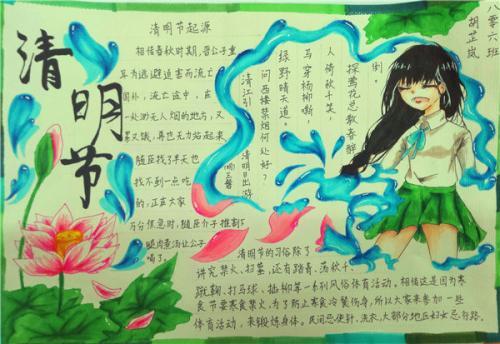 清明节
清明节起源
相传春秋时期,晋公子重
耳为逃避迫害而流亡
国外,流亡途中,在
一处渺无人烟的地方,又
累又饿,再也无力站起来
随臣找了半天也
找不到一点吃
的,正在大家
万分焦急时,随臣介子推割了
腿肉煮汤让公子
喝了
清江引
清明日出游
明 王磐
问西楼禁烟何处好?
绿野晴天道。
马穿杨柳嘶,
人倚秋千笑,
探莺花总教春醉
倒。
八零六班
胡芷岚
清明节的习俗除了
讲究禁火、扫墓,还有踏青、荡秋千、
蹴鞠、打马球、插柳等一系列风俗体育活动。相传这是因为寒
食节要寒食禁火,为了防止寒食冷餐伤身,所以大家来参加一些
体育活动,来锻炼身体。民间忌使针,洗衣,大部分地区妇女忌行路。